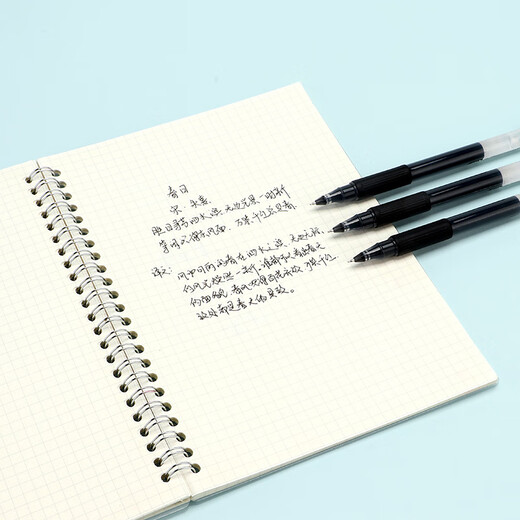 春日
宋 朱熹
胜日寻芳泗水滨,无边光景一时新
等闲识得东风面,万紫千红总是春.
译文:风和日丽游春在泗水之滨,无边无际
的风光焕然一新.谁都可以看出春天
的面貌,春风吹得百花开放,万紫千红
到处都是春天的景致